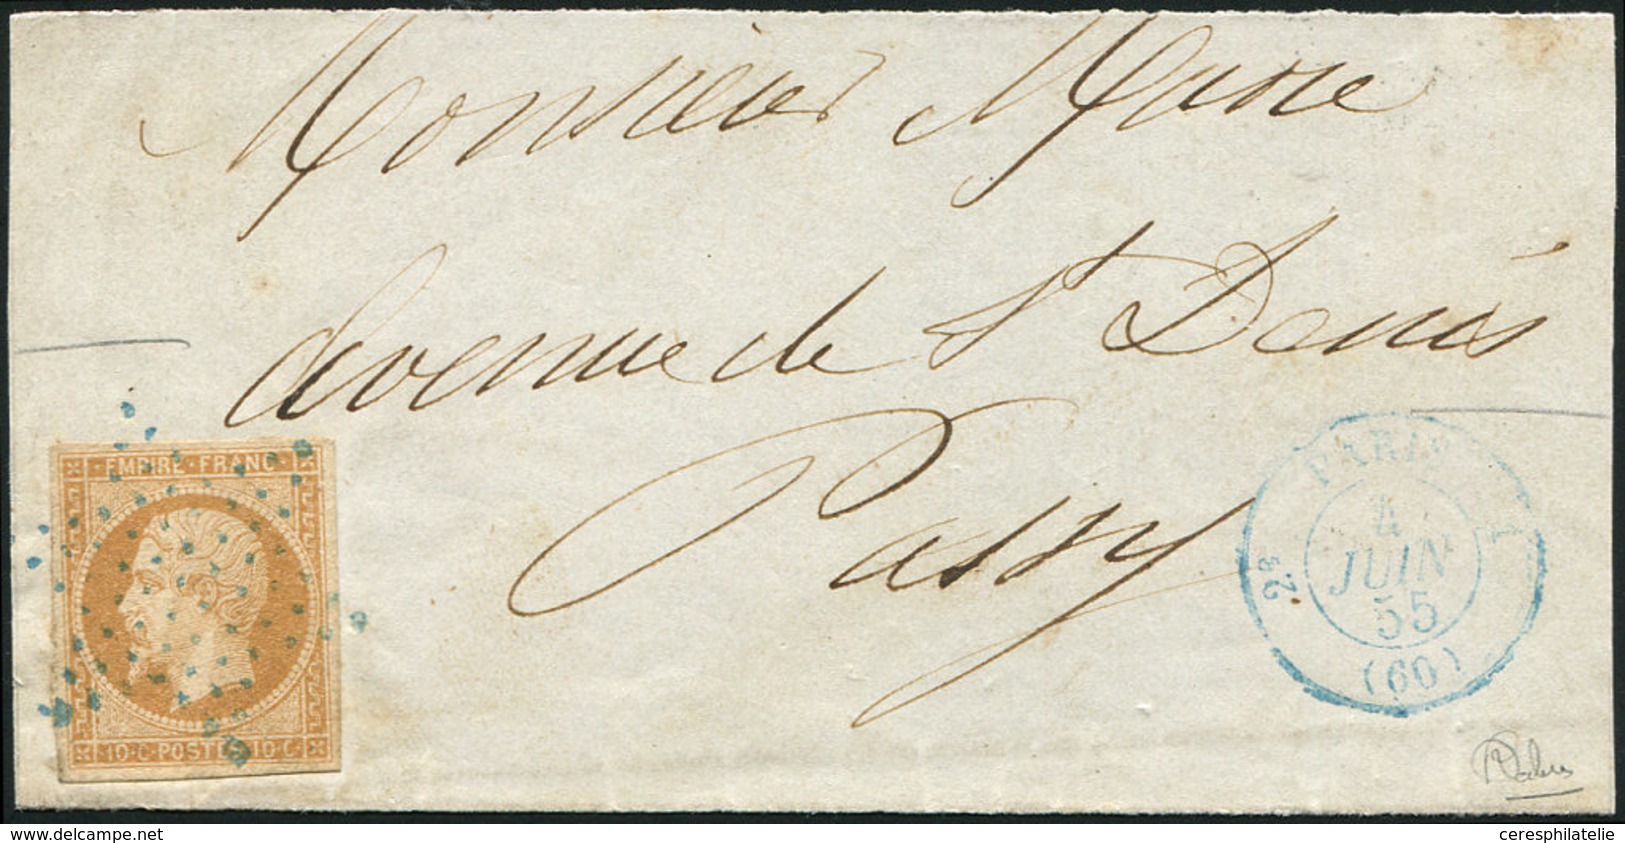 Monsieur Musse
Avenue de St Denis
Passy
EMPIRE FRANC
10·C·POSTES·10·C
PARIS
2e
1
4
JUIN
55
(60)
www.delcampe.net
ceresphilatelie